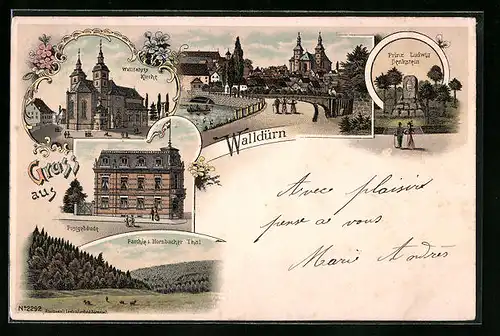 Wallfahrts
Kirche
Prinz Ludwig
Denkstein
Walldürn
Gruss
aus
Postgebäude
Parthie i. Hornbacher Thal
Avec plaisir
pense a vous
Marie Andres
No 2292